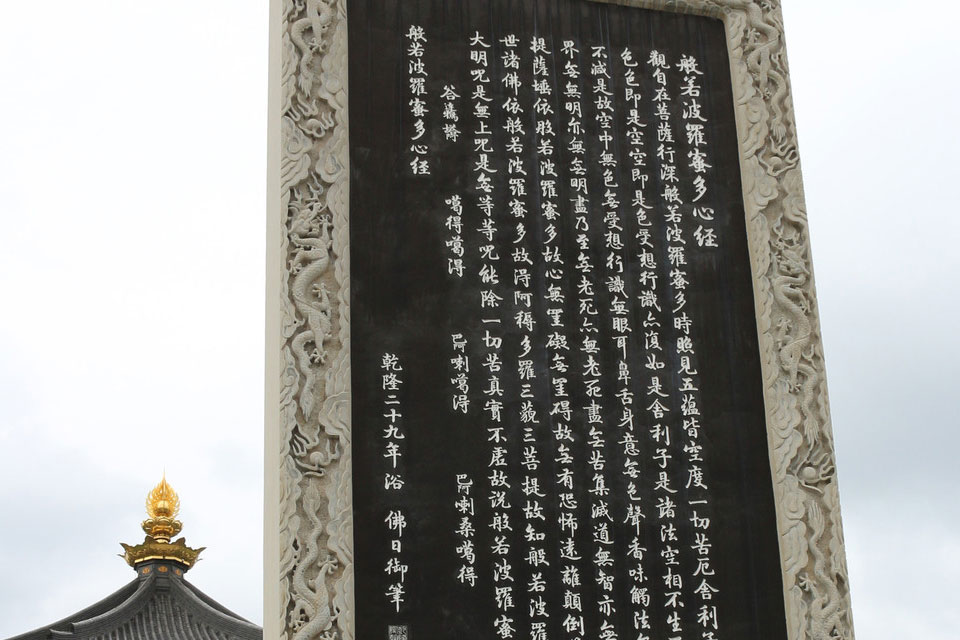 般若波羅蜜多心経
觀自在菩薩行深般若波羅蜜多時照見五蘊皆空度一切苦厄舍利子
色色即是空空即是色受想行識亦復如是舍利子是諸法空相不生
不减是故空中無色無受想行識無眼耳鼻舌身意無色聲香味觸法
界無無明亦無無明盡乃至無老死亦無老死盡無苦集滅道無智亦無
提薩埵依般若波羅蜜多故心無罣礙無罣碍故無有恐怖遠離顛倒
世諸佛依般若波羅蜜多故得阿耨多羅三藐三菩提故知般若波羅
大明咒是無上咒是無等等咒能除一切苦真實不虛故說般若波羅蜜
噶得噶得 喇噶得 喇桑噶得
般若波羅蜜多心経
乾隆二十九年浴 佛日御筆